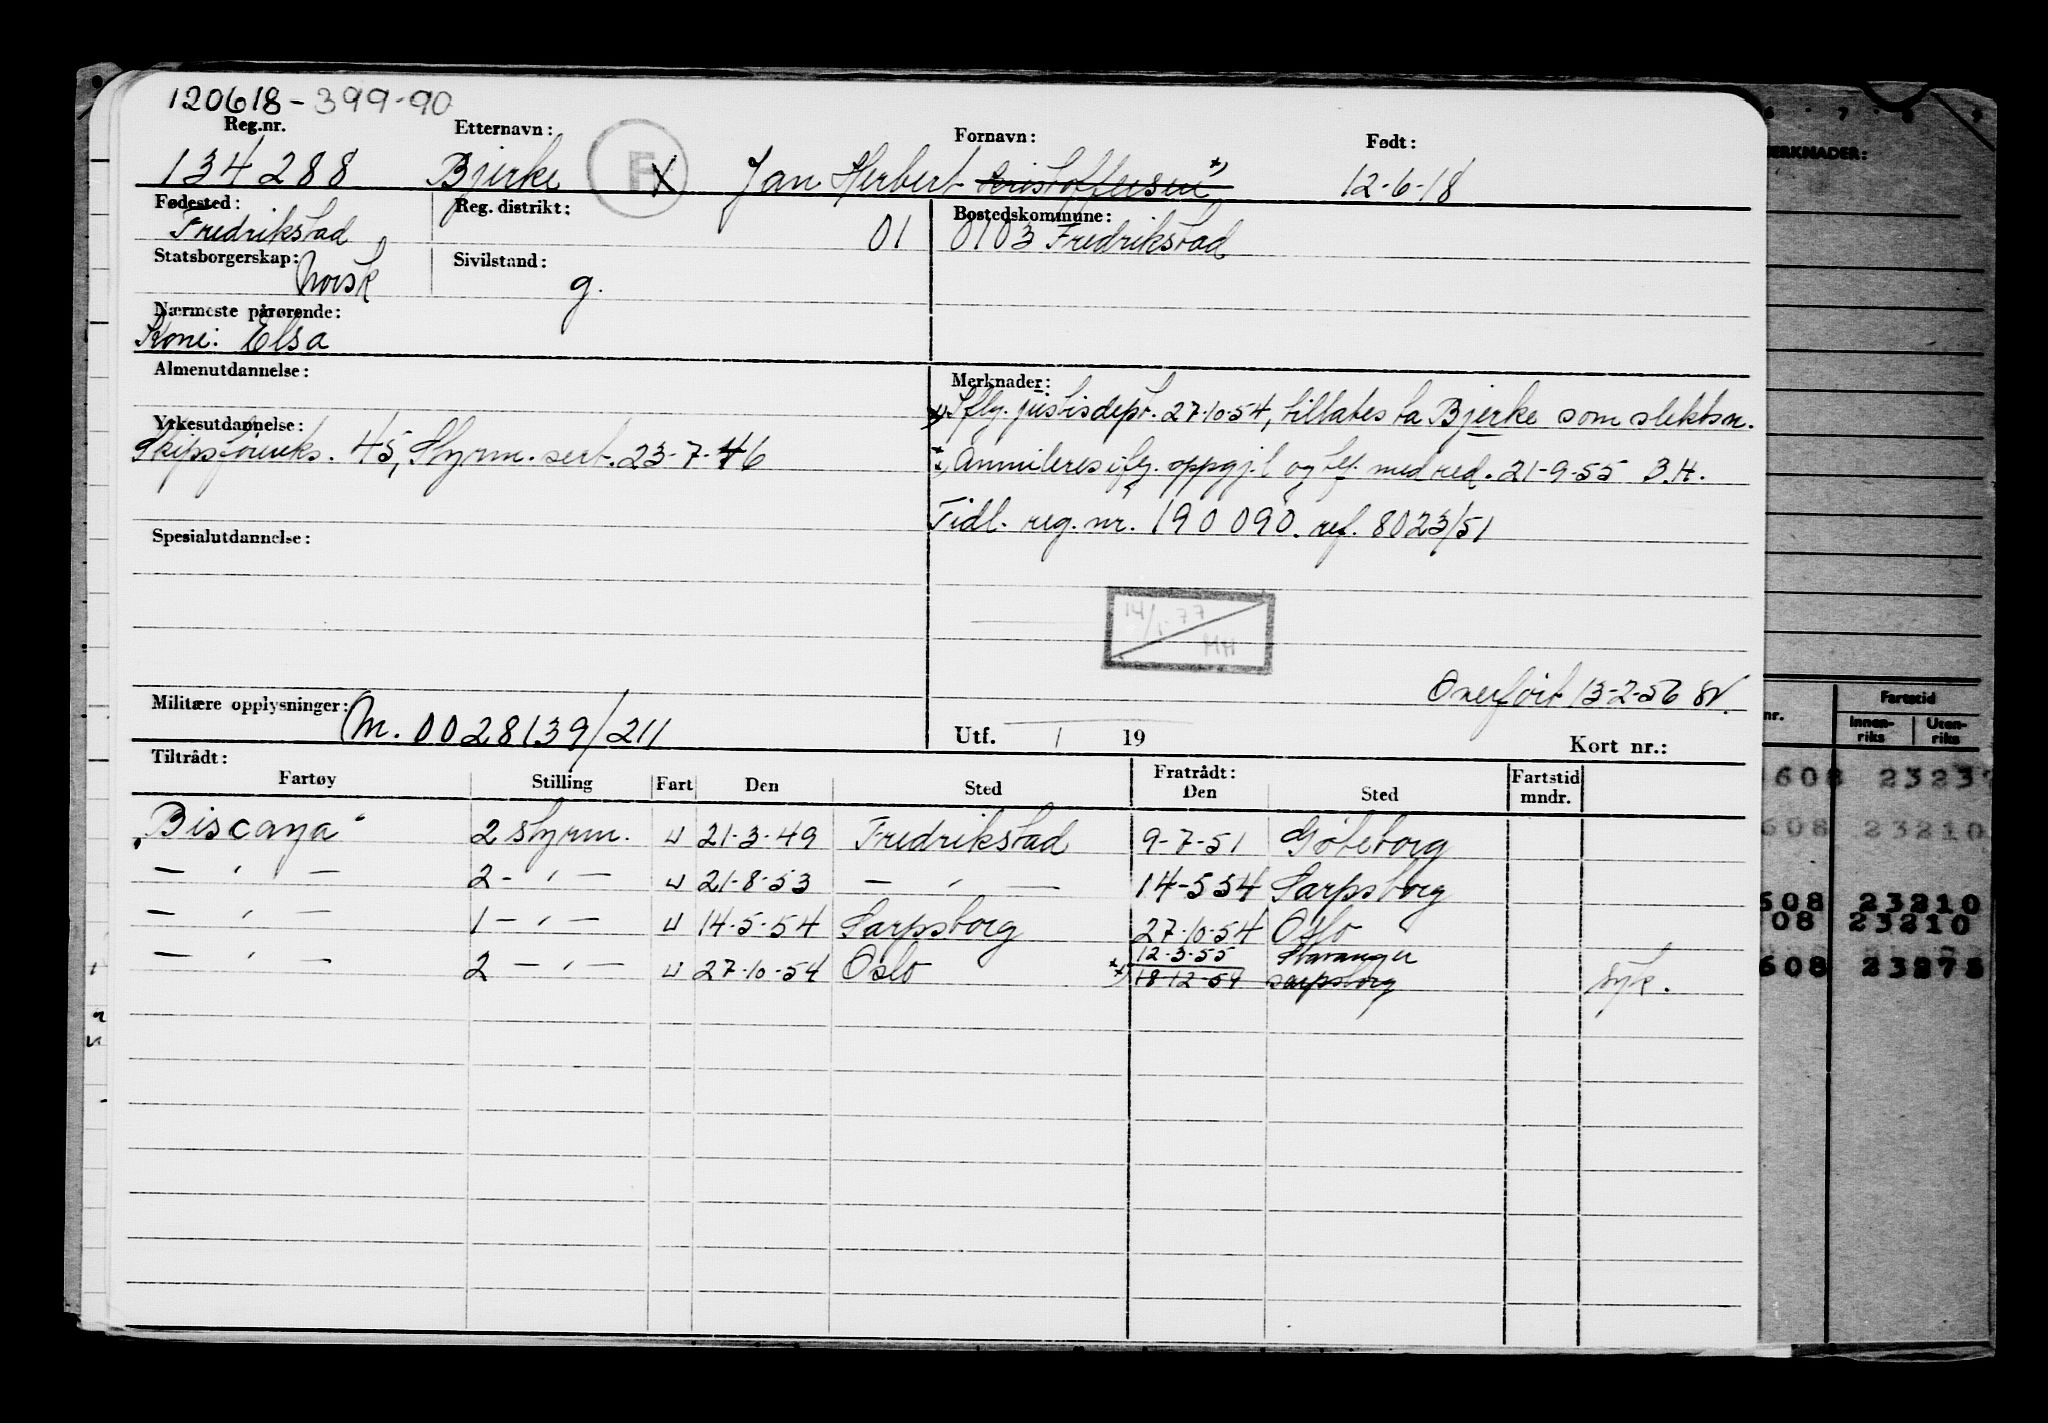 120618-399-90
Reg.nr. Etternavn: Fornavn: Født:
134288 Bjerke F X Jan Herbert Kristoffersen *) 12-6-18
Fødested: Reg. distrikt: Bostedskommune:
Fredrikstad 01 0103 Fredrikstad
Statsborgerskap: Sivilstand:
Norsk g.
Nærmeste pårørende:
Kone: Elsa
Almenutdannelse: Merknader:
*) Iflg. justisdept. 27-10-54, tillates ta Bjerke som slektsn.
Yrkesutdannelse:
Skipsføreeks. 45, Styrm. sert. 23-7-46
*) Annuleres iflg. oppgj. og tlf. med red. 21-9-55 B.H.
Tidl. reg. nr. 190 090. ref. 8023/51
Spesialutdannelse:
14/1-77
MH
Overført 13-2-56
Militære opplysninger: M. 0028139/211
Utf. / 19 Kort nr.:
Tiltrådt: Fratrådt: Fartstid
Fartøy Stilling Fart Den Sted Den Sted mndr.
"Biscaya" 2 styrm. u 21-3-49 Fredrikstad 9-7-51 Göteborg
— " — 2 — " — u 21-8-53 — " — 14-5 54 Sarpsborg
— " — 1 — " — u 14-5-54 Sarpsborg 27-10-54 Oslo
12-3-55 Stavanger
— " — 2 — " — u 27-10-54 Oslo *) 18-12-54 Sarpsborg syk.
6 7 8 9
MERKNADER:
nr. Fartstid
Innen-riks Uten-riks
608 2323
608 23210
608 23210
08 23210
608 23275